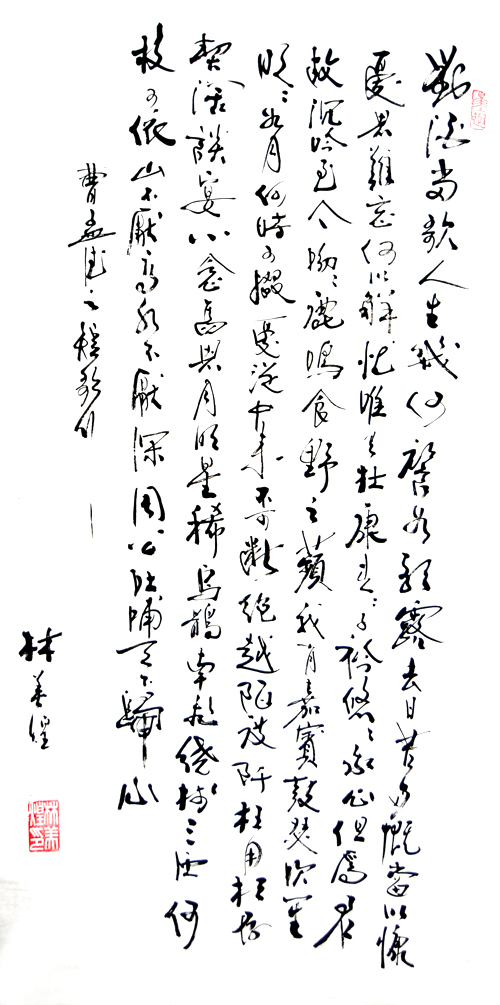 對酒當歌人生幾何譬如朝露去日苦多慨當以慷
憂思難忘何以解忧唯有杜康青々子衿悠々我心但為君
故沉吟至今呦々鹿鳴食野之蘋我有嘉賓鼓瑟吹笙
明々如月何時可掇憂從中來不可斷絕越陌度阡枉用相存
契闊談宴心念舊恩月明星稀烏鵲南飛繞樹三匝何
枝可依山不厭高水不厭深周公吐哺天下歸心
曹孟德之短歌行
林美煌
林美煌印